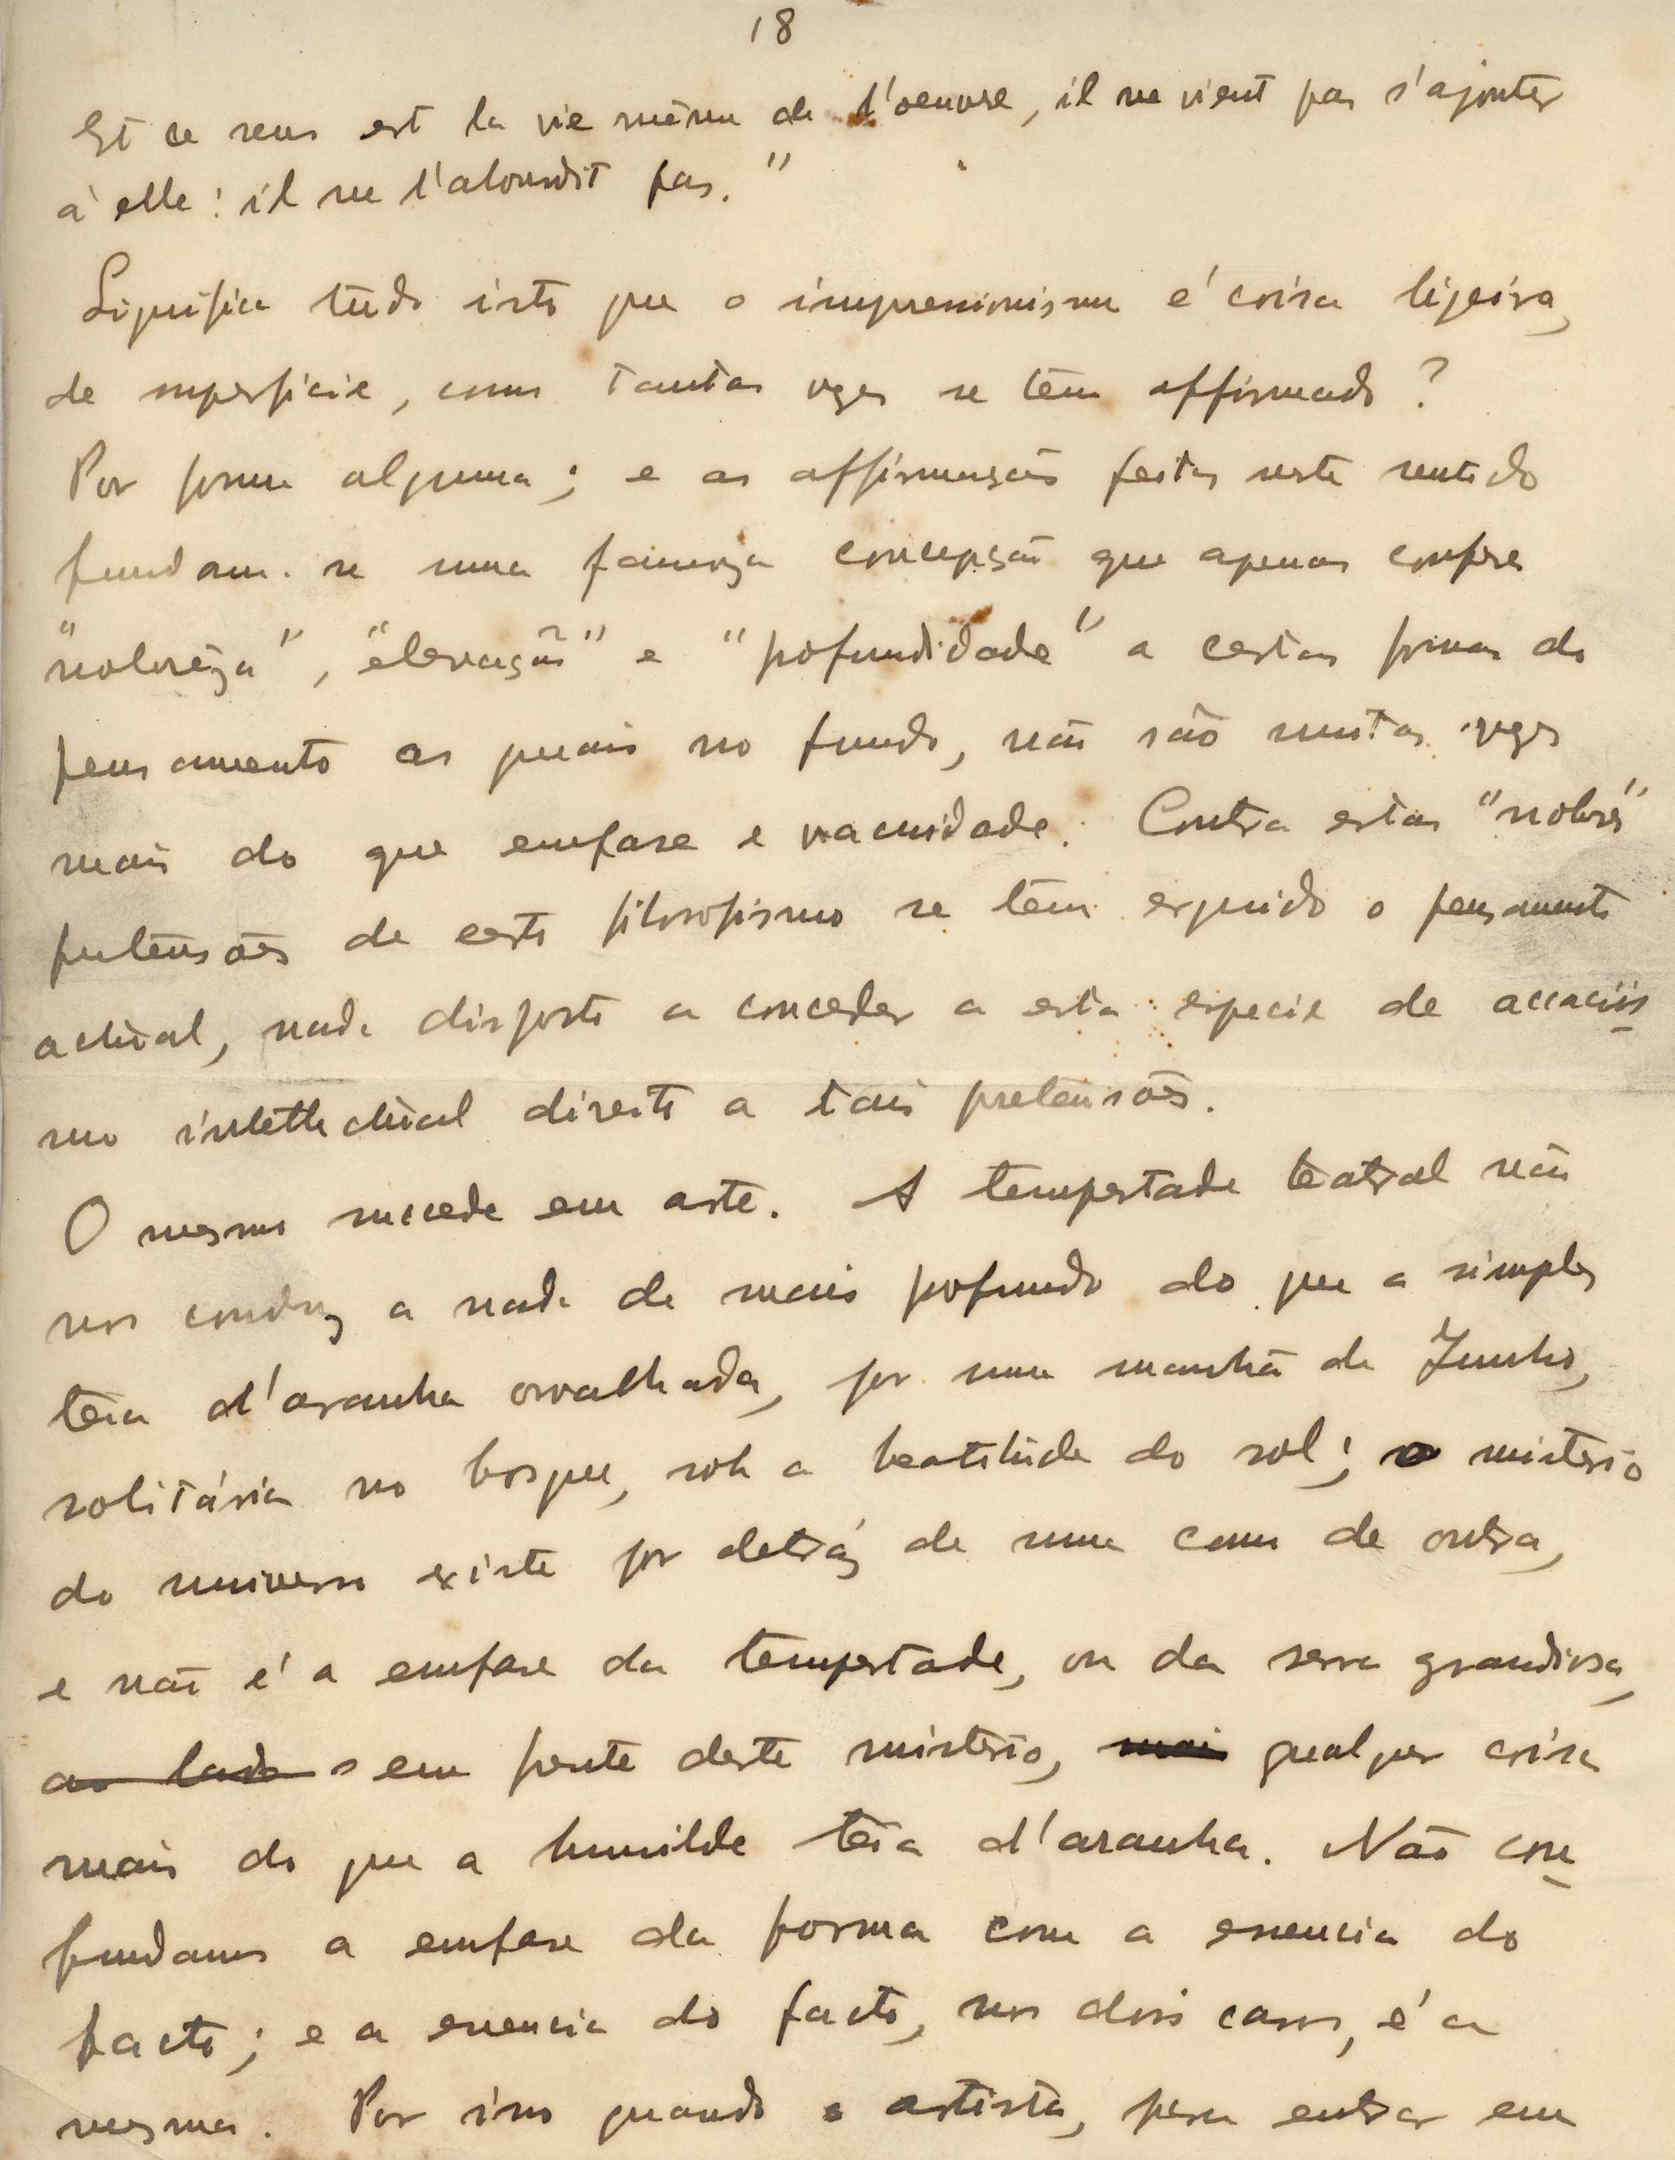 18
Et ce sens est la vie même de l'oeuvre, il ne vient pas s'ajouter
à elle: il ne l'alourdit pas."
Significa tudo isto que o impressionismo é coisa ligeira,
de superficie, como tantas vezes se tem affirmado?
Por forma alguma; e as affirmações feitas neste sentido
fundam-se numa concepção que apenas confere
"nobreza", "elevação" e "profundidade" a certas formas do
pensamento as quais no fundo, não são muitas vezes
mais do que emfase e vacuidade. Contra estas "nobres"
pretensões de certo filosofismo se tem erguido o pensamento
actual, nada disposto a conceder a esta especie de accaciis-
mo intellectual direito a tais pretensões.
O mesmo succede em arte. A tempestade teatral não
nos conduz a nada de mais profundo do que a simples
teia d'aranha orvalhada, por uma manhã de Junho,
solitária no bosque, sob a beatitude do sol; o misterio
do universo existe por detráz de uma como de outra,
e não é a emfase da tempestade, ou da serra grandiosa,
ao lado em frente deste misterio, mais qualquer coisa
mais do que a humilde teia d'aranha. Não con-
fundamos a emfase da forma com a essencia do
facto; e a essencia do facto, nos dois casos, é a
mesma. Por isso quando o artista, para entrar em